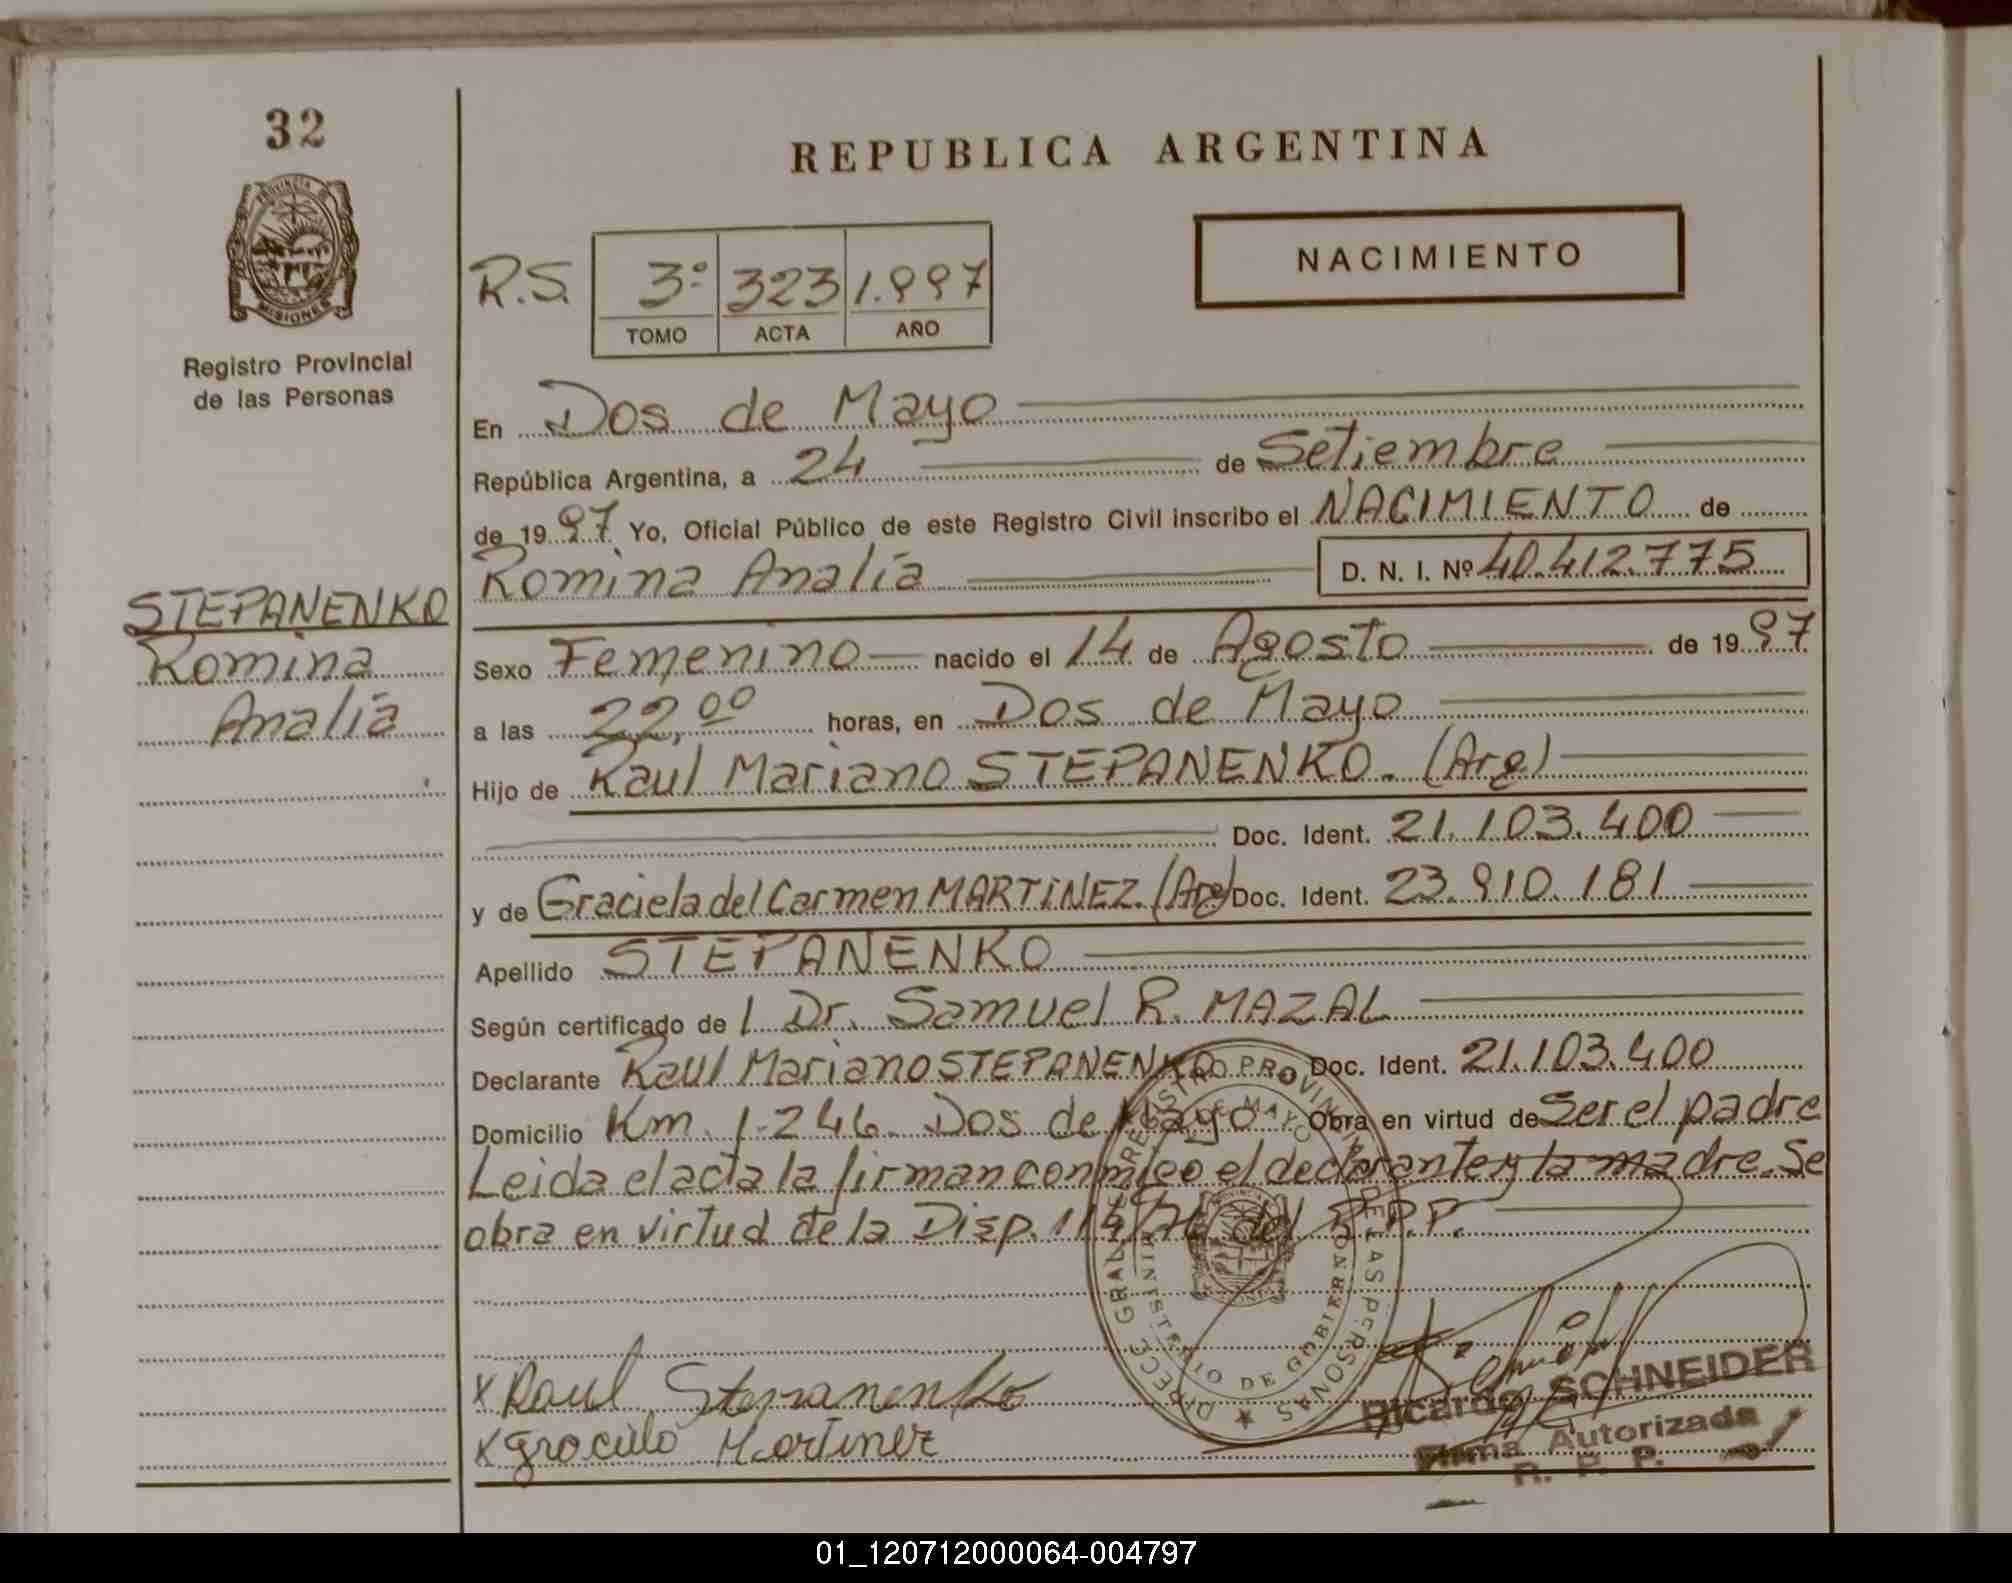 32
PROVINCIA DE
MISIONES
Registro Provincial
de las Personas
REPUBLICA ARGENTINA
NACIMIENTO
R.S. 3º 323 1.997
TOMO ACTA AÑO
En Dos de Mayo
República Argentina, a 24 de Setiembre
de 1997 Yo, Oficial Público de este Registro Civil inscribo el NACIMIENTO de
Romina Analía D. N. I. Nº 40.412.775
STEPANENKO
Romina
Analía
Sexo Femenino nacido el 14 de Agosto de 1997
a las 22,00 horas, en Dos de Mayo
Hijo de Raul Mariano STEPANENKO. (Arg)
Doc. Ident. 21.103.400
y de Graciela del Carmen MARTINEZ. (Arg) Doc. Ident. 23.910.181
Apellido STEPANENKO
Según certificado de 1 Dr. Samuel R. MAZAL
Declarante Raul Mariano STEPANENKO Doc. Ident. 21.103.400
Domicilio Km. 1.246. Dos de Mayo Obra en virtud de Ser el padre
Leida el acta la firman conmigo el declarante y la madre. Se
obra en virtud de la Disp. del R.P.P.
DIRECC GRAL DE REGISTRO PROVINCIAL DE LAS PERSONAS
MINISTERIO DE GOBIERNO
DE MAYO
x Raul Stepanenko
x Graciela Martinez
Ricardo SCHNEIDER
Firma Autorizada
R. P. P.
01_120712000064-004797